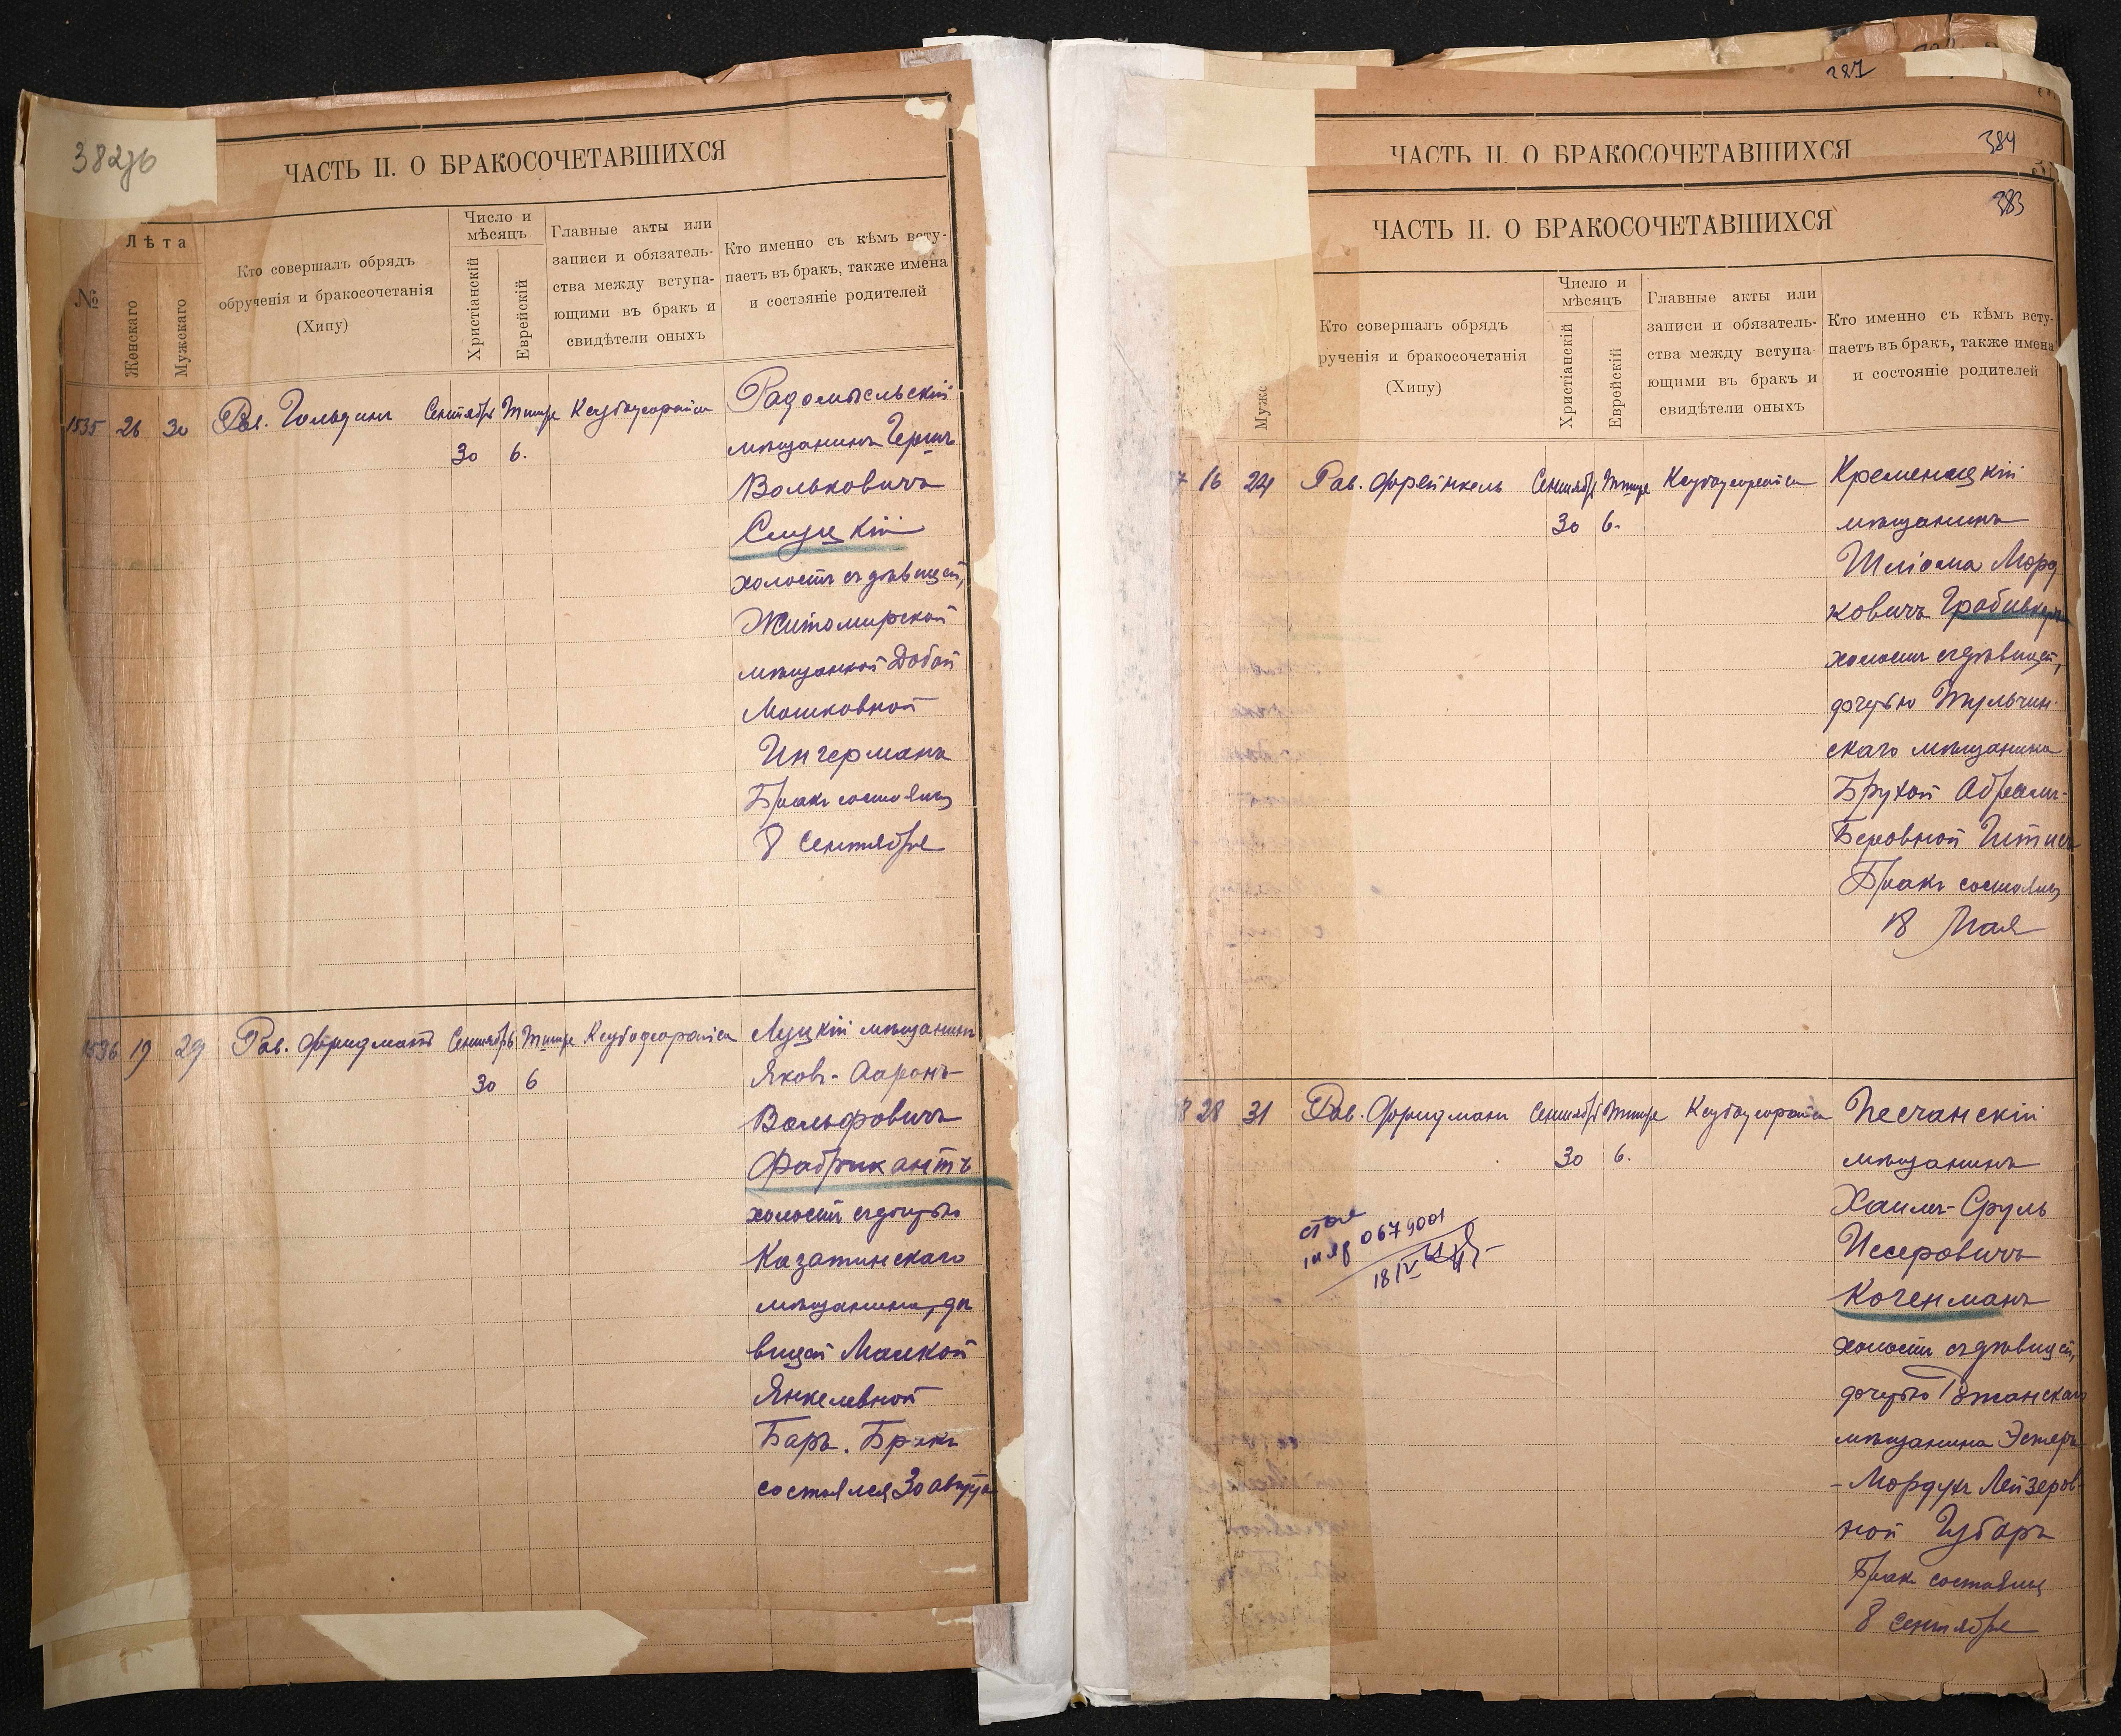 382об
ЧАСТЬ II. О БРАКОСОЧЕТАВШИХСЯ
№
Лѣта
Женскаго
Мужскаго
Кто совершалъ обрядъ
обрученія и бракосочетанія
(Хипу)
Число и
мѣсяцъ
Христіанскій
Еврейскій
Главные акты или
записи и обязатель-
ства между вступа-
ющими въ бракъ и
свидѣтели оныхъ
Кто именно съ кѣмъ всту-
паетъ въ бракъ, также имена
и состояніе родителей
1535 26 30 Рав. Гольдинъ Сентября Тишре
30 6.
Радомысльскій
мѣщанинъ Гершъ
Вольковичъ
Слуцкій
холостъ съ дѣвицей,
Житомирской
мѣщанкой Добой
Мошковной
Ингерманъ
Бракъ состоялся
8 Сентября
1536 19 29 Рав. Фридманъ Сентябрь Тишре
30 6
Луцкій мѣщанинъ
Яковъ-Ааронъ
Вольфовичъ
Фабрикантъ
холостъ съ дочерью
Казатинскаго
мѣщанина, дѣ
вицей Малкой
Янкелевной
Баръ. Бракъ
состоялся 30 августа
287
ЧАСТЬ II. О БРАКОСОЧЕТАВШИХСЯ
384
383
ЧАСТЬ II. О БРАКОСОЧЕТАВШИХСЯ
Муж
Кто совершалъ обрядъ
рученія и бракосочетанія
(Хипу)
Число и
мѣсяцъ
Христіанскій
Еврейскій
Главные акты или
записи и обязатель-
ства между вступа-
ющими въ бракъ и
свидѣтели оныхъ
Кто именно съ кѣмъ всту-
паетъ въ бракъ, также имена
и состояніе родителей
7 16 24 Рав. Френкель Сентября Тишре
30 6.
Кременецкій
мѣщанинъ
Шліома Морд
ковичъ
холостъ съ дѣвицей,
дочерью Тульчин-
скаго мѣщанина
Брухой Абрамъ-
Беровной
Бракъ состоялся
18 Мая
8 28 31 Рав. Фридманъ Сентября Тишре
30 6.
Песчанскій
мѣщанинъ
Хаимъ-Сруль
Иссеровичъ
Коченманъ
холостъ съ дѣвицей,
дочерью
мѣщанина Эстеръ
-Мордухъ Лейзеров-
ной Губаръ
Бракъ состоялся
8 Сентября
0679001
18/IV